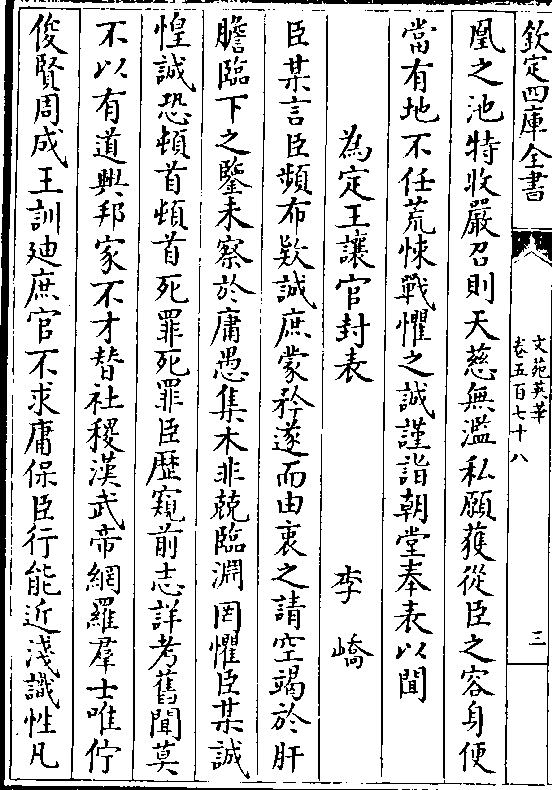 欽定四庫全書
文苑英華
卷五百七十八
三
凰之池特收嚴召則天慈無濫私願獲從臣之容身便
當有地不任荒悚戰懼之誠謹詣朝堂奉表以聞
為定王讓官封表 李嶠
臣某言臣頻布欵誠庶蒙矜遂而由衷之請空竭於肝
膽臨下之鑒未察於庸愚集木非兢臨淵罔懼臣某誠
惶誠恐頓首頓首死罪死罪臣歴窺前志詳考舊聞莫
不以有道興邦家不才替社稷漢武帝網羅羣士唯佇
俊賢周成王訓廸庶官不求庸保臣行能近淺識性凡